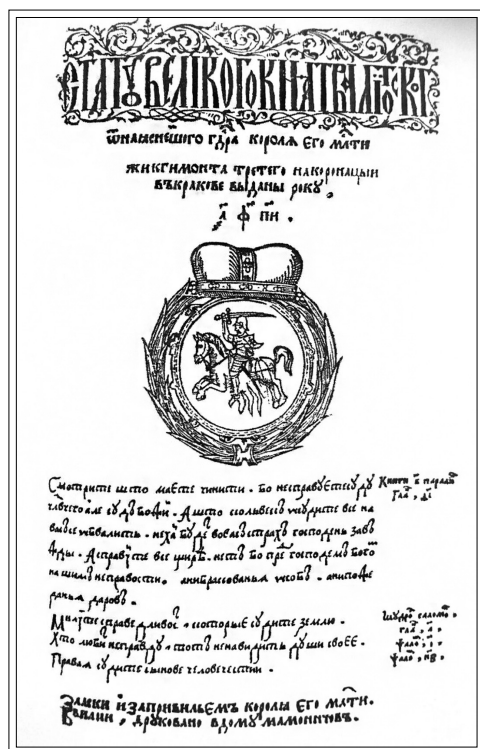 СТАТУТ ВЕЛИКОГО КНЗТВА ЛИТОВСКОГ
ѿнаꙗснѣйшого гд҃рꙗ королꙗ его мл҃ти
жикгимонта третего накоронацыи
въкракове выданы року
҂а ф п҃и .
Смотрите што маете чинити . бо несправуетесуду
чл҃вчегоале судъ божи . Аштоколвекъ усудите все на
нехай будеть вовасъ страхъ господень завъ
жды . Асправуйте все щире . нестъ бо пред господемъ богом
нашимъ несправности . анибракованьꙗ особъ . анипожа
даньꙗ даровъ .
Милуйте справедливост , которые судите землю .
Хто любит несправду , тотъ ненавидить души своее .
Правая судите сынове человечестии .
Книги в҃ парали҃
гла ,
Мудро҃ саломо҃ .
гла , а҃ .
ѱало , і҃ .
ѱало , н҃з .
Замки изапривильемъ королꙗ его мл҃ти .
Ввилни , друковано вдому мамоничовъ .